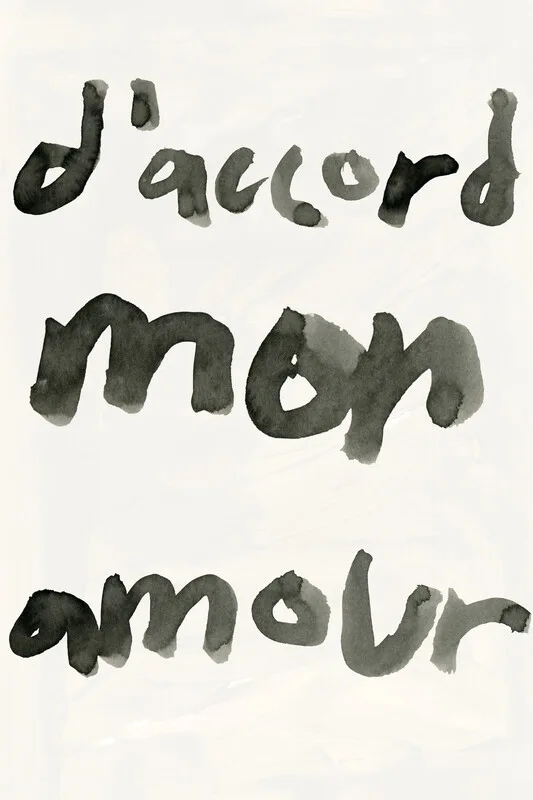 d'accord
mon
amour